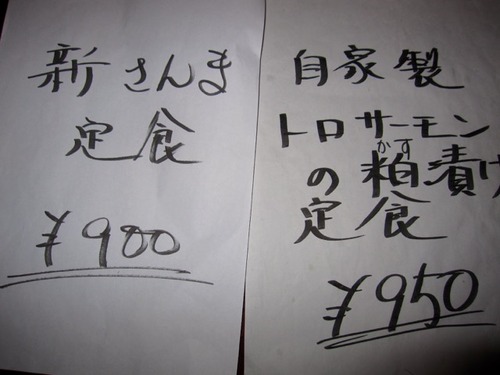 新さんま
定食
¥900
自家製
トロサーモン
かす
の粕漬け
定食
¥950